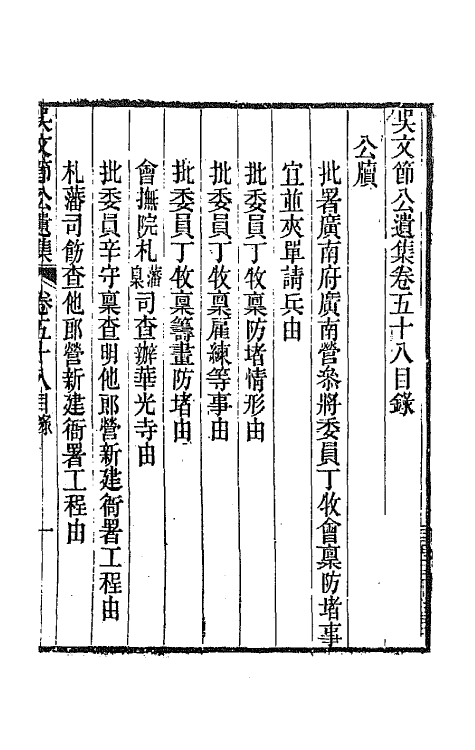 吳文節公遺集卷五十八目錄
公牘
批署廣南府廣南營叅將委員丁牧會稟防堵事
宜並夾單請兵由
批委員丁牧稟防堵情形由
批委員丁牧稟雇練等事由
批委員丁牧稟籌畫防堵由
會撫院札藩臬司查辦華光寺由
批委員辛守稟查明他郎營新建衙署工程由
札藩司飭查他郎營新建衙署工程由
吳文節公遺集 卷五十八目錄 一